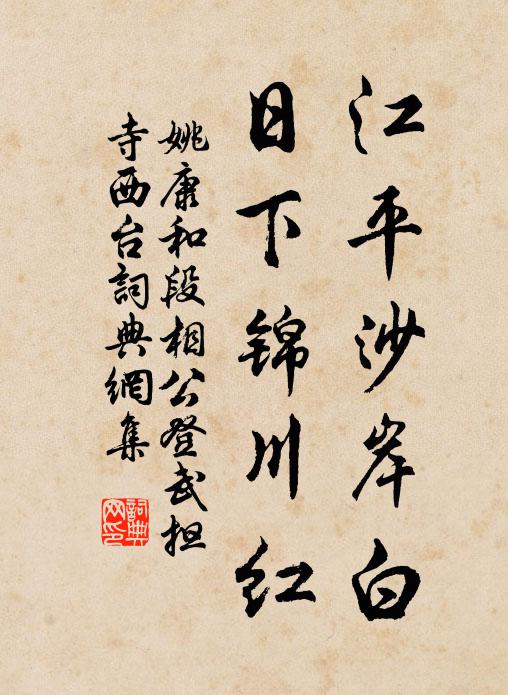 江平沙岸白
日下锦川红
姚康和段相公登武担
寺西台詞典網集
詞典网印